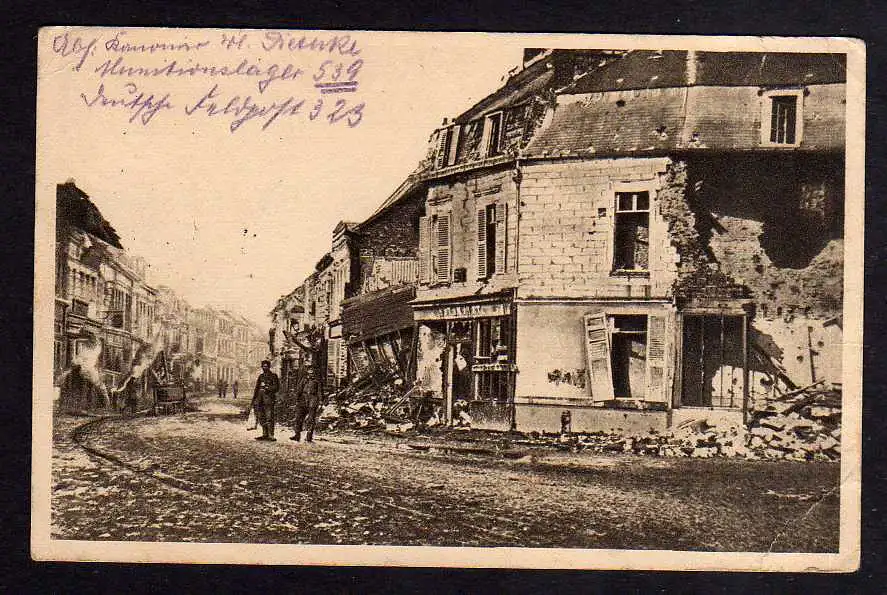 Abs. Kanonier W.
Munitionslager 539
Deutsche Feldpost 323